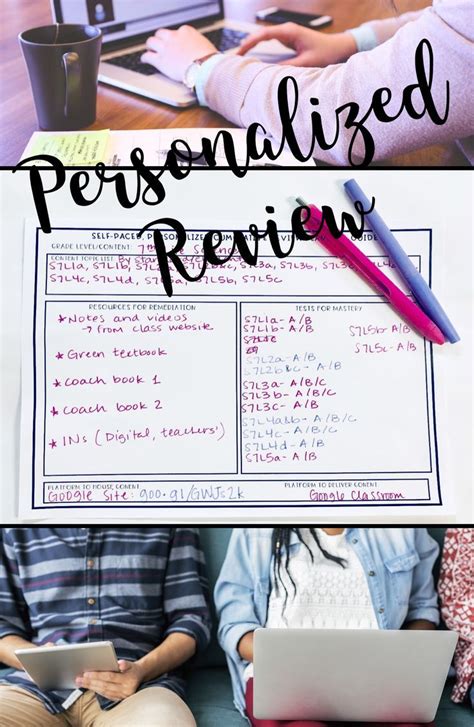 Personalized
Review
SELF-PACED, PERSONALIZED GUIDE
GRADE LEVEL/CONTENT: 7th Life Science
CONTENT TOPIC LIST
S7L1a, S7L1b, S7L1c, S7L3a, S7L3b, S7L3c
S7L4c, S7L4d, S7L5a, S7L5b, S7L5c
RESOURCES FOR REMEDIATION
* Notes and videos
→ from class website
* Green textbook
* coach book 1
* coach book 2
* INs (Digital, teachers')
TESTS FOR MASTERY
S7L1a- A/B
S7L1b- A/B
S7L2a- A/B
S7L2b&c- A/B
S7L3a- A/B/C
S7L3b- A/B/C
S7L3c- A/B
S7L4a&b- A/B/C
S7L4c- A/B/C
S7L4d- A/B
S7L5a- A/B
S7L5b- A/B
S7L5c- A/B
PLATFORM TO HOUSE CONTENT
Google Site: goo.gl/GWJs2k
PLATFORM TO DELIVER CONTENT
Google Classroom